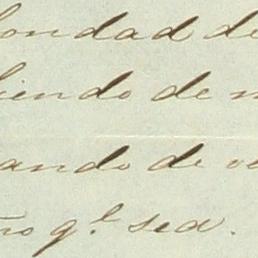 bondad de
biendo de
ando de
no q.e sea.